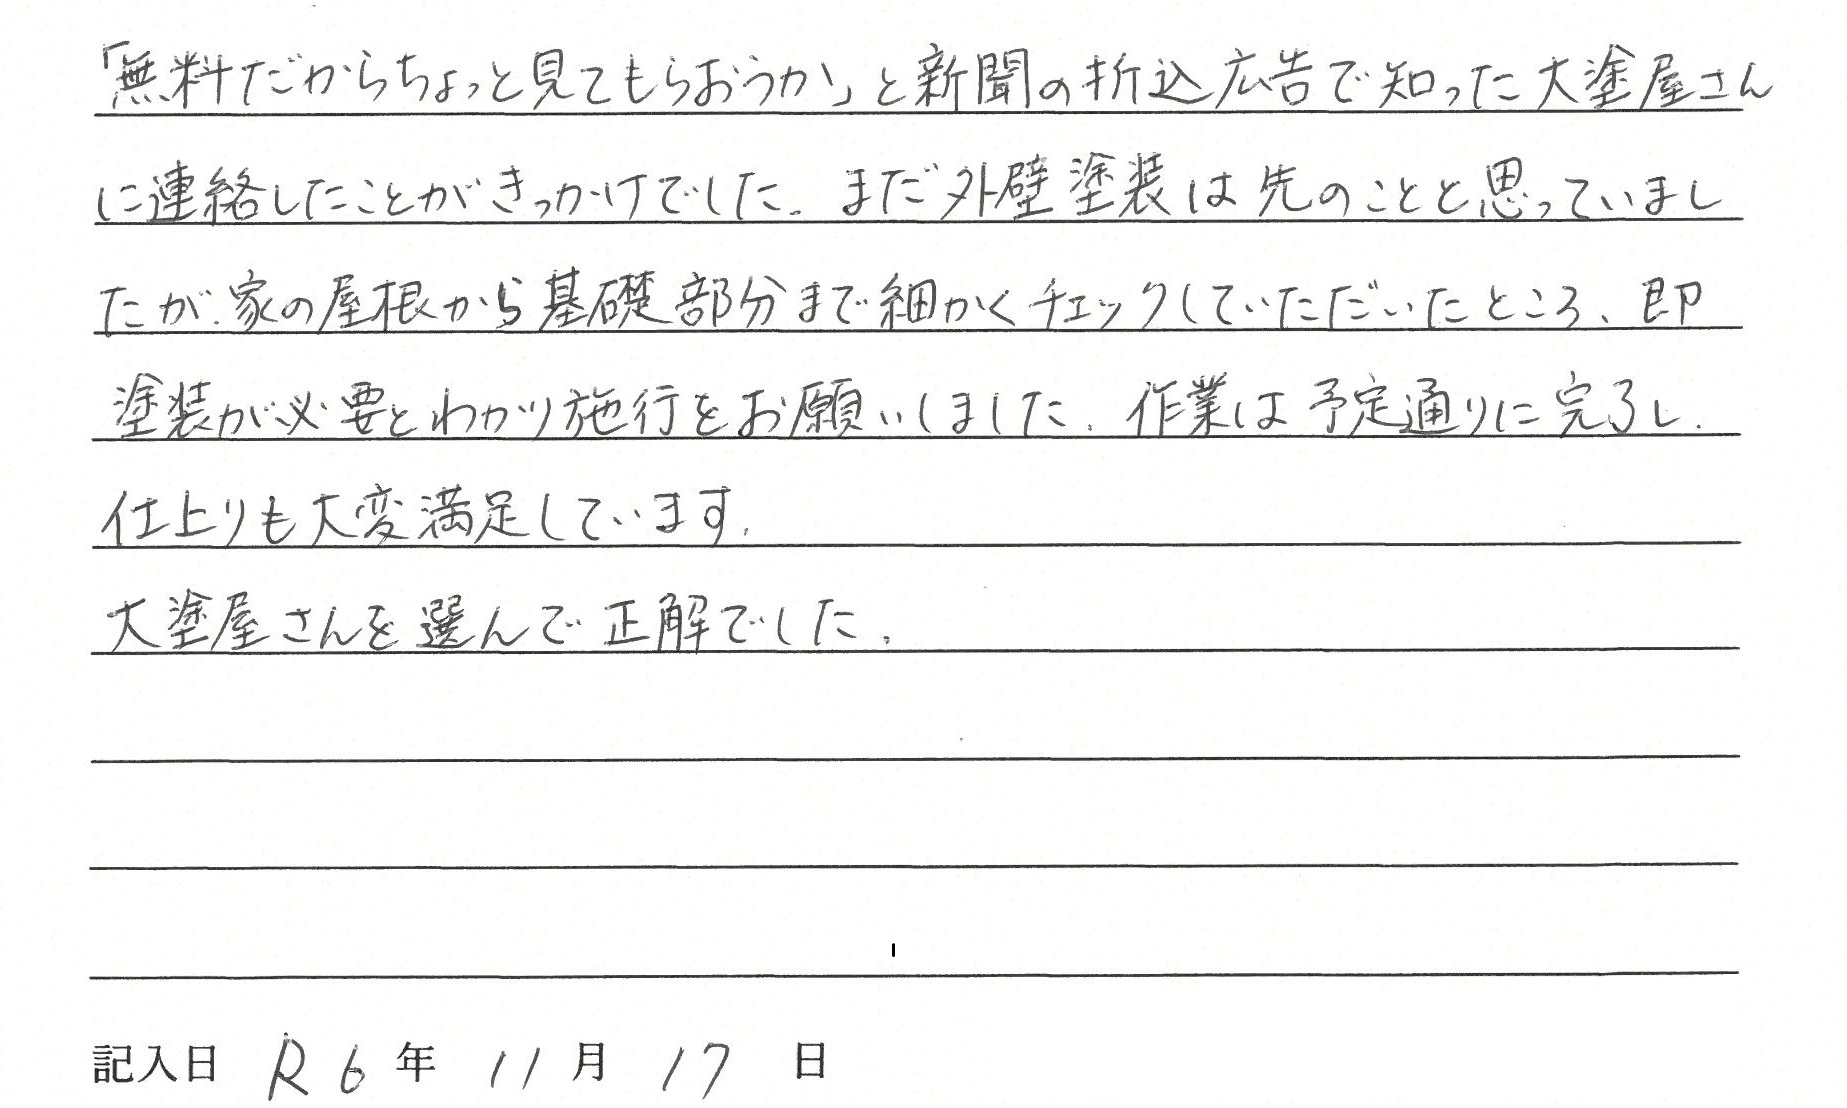 「無料だからちょっと見てもらおうか」と新聞の折込広告で知った大塗屋さん
に連絡したことがきっかけでした。まだ外壁塗装は先のことと思っていまし
たが、家の屋根から基礎部分まで細かくチェックしていただいたところ、即
塗装が必要とわかり施行をお願いしました。作業は予定通りに完了し、
仕上りも大変満足しています。
大塗屋さんを選んで正解でした。
記入日 R6年 11月 17日